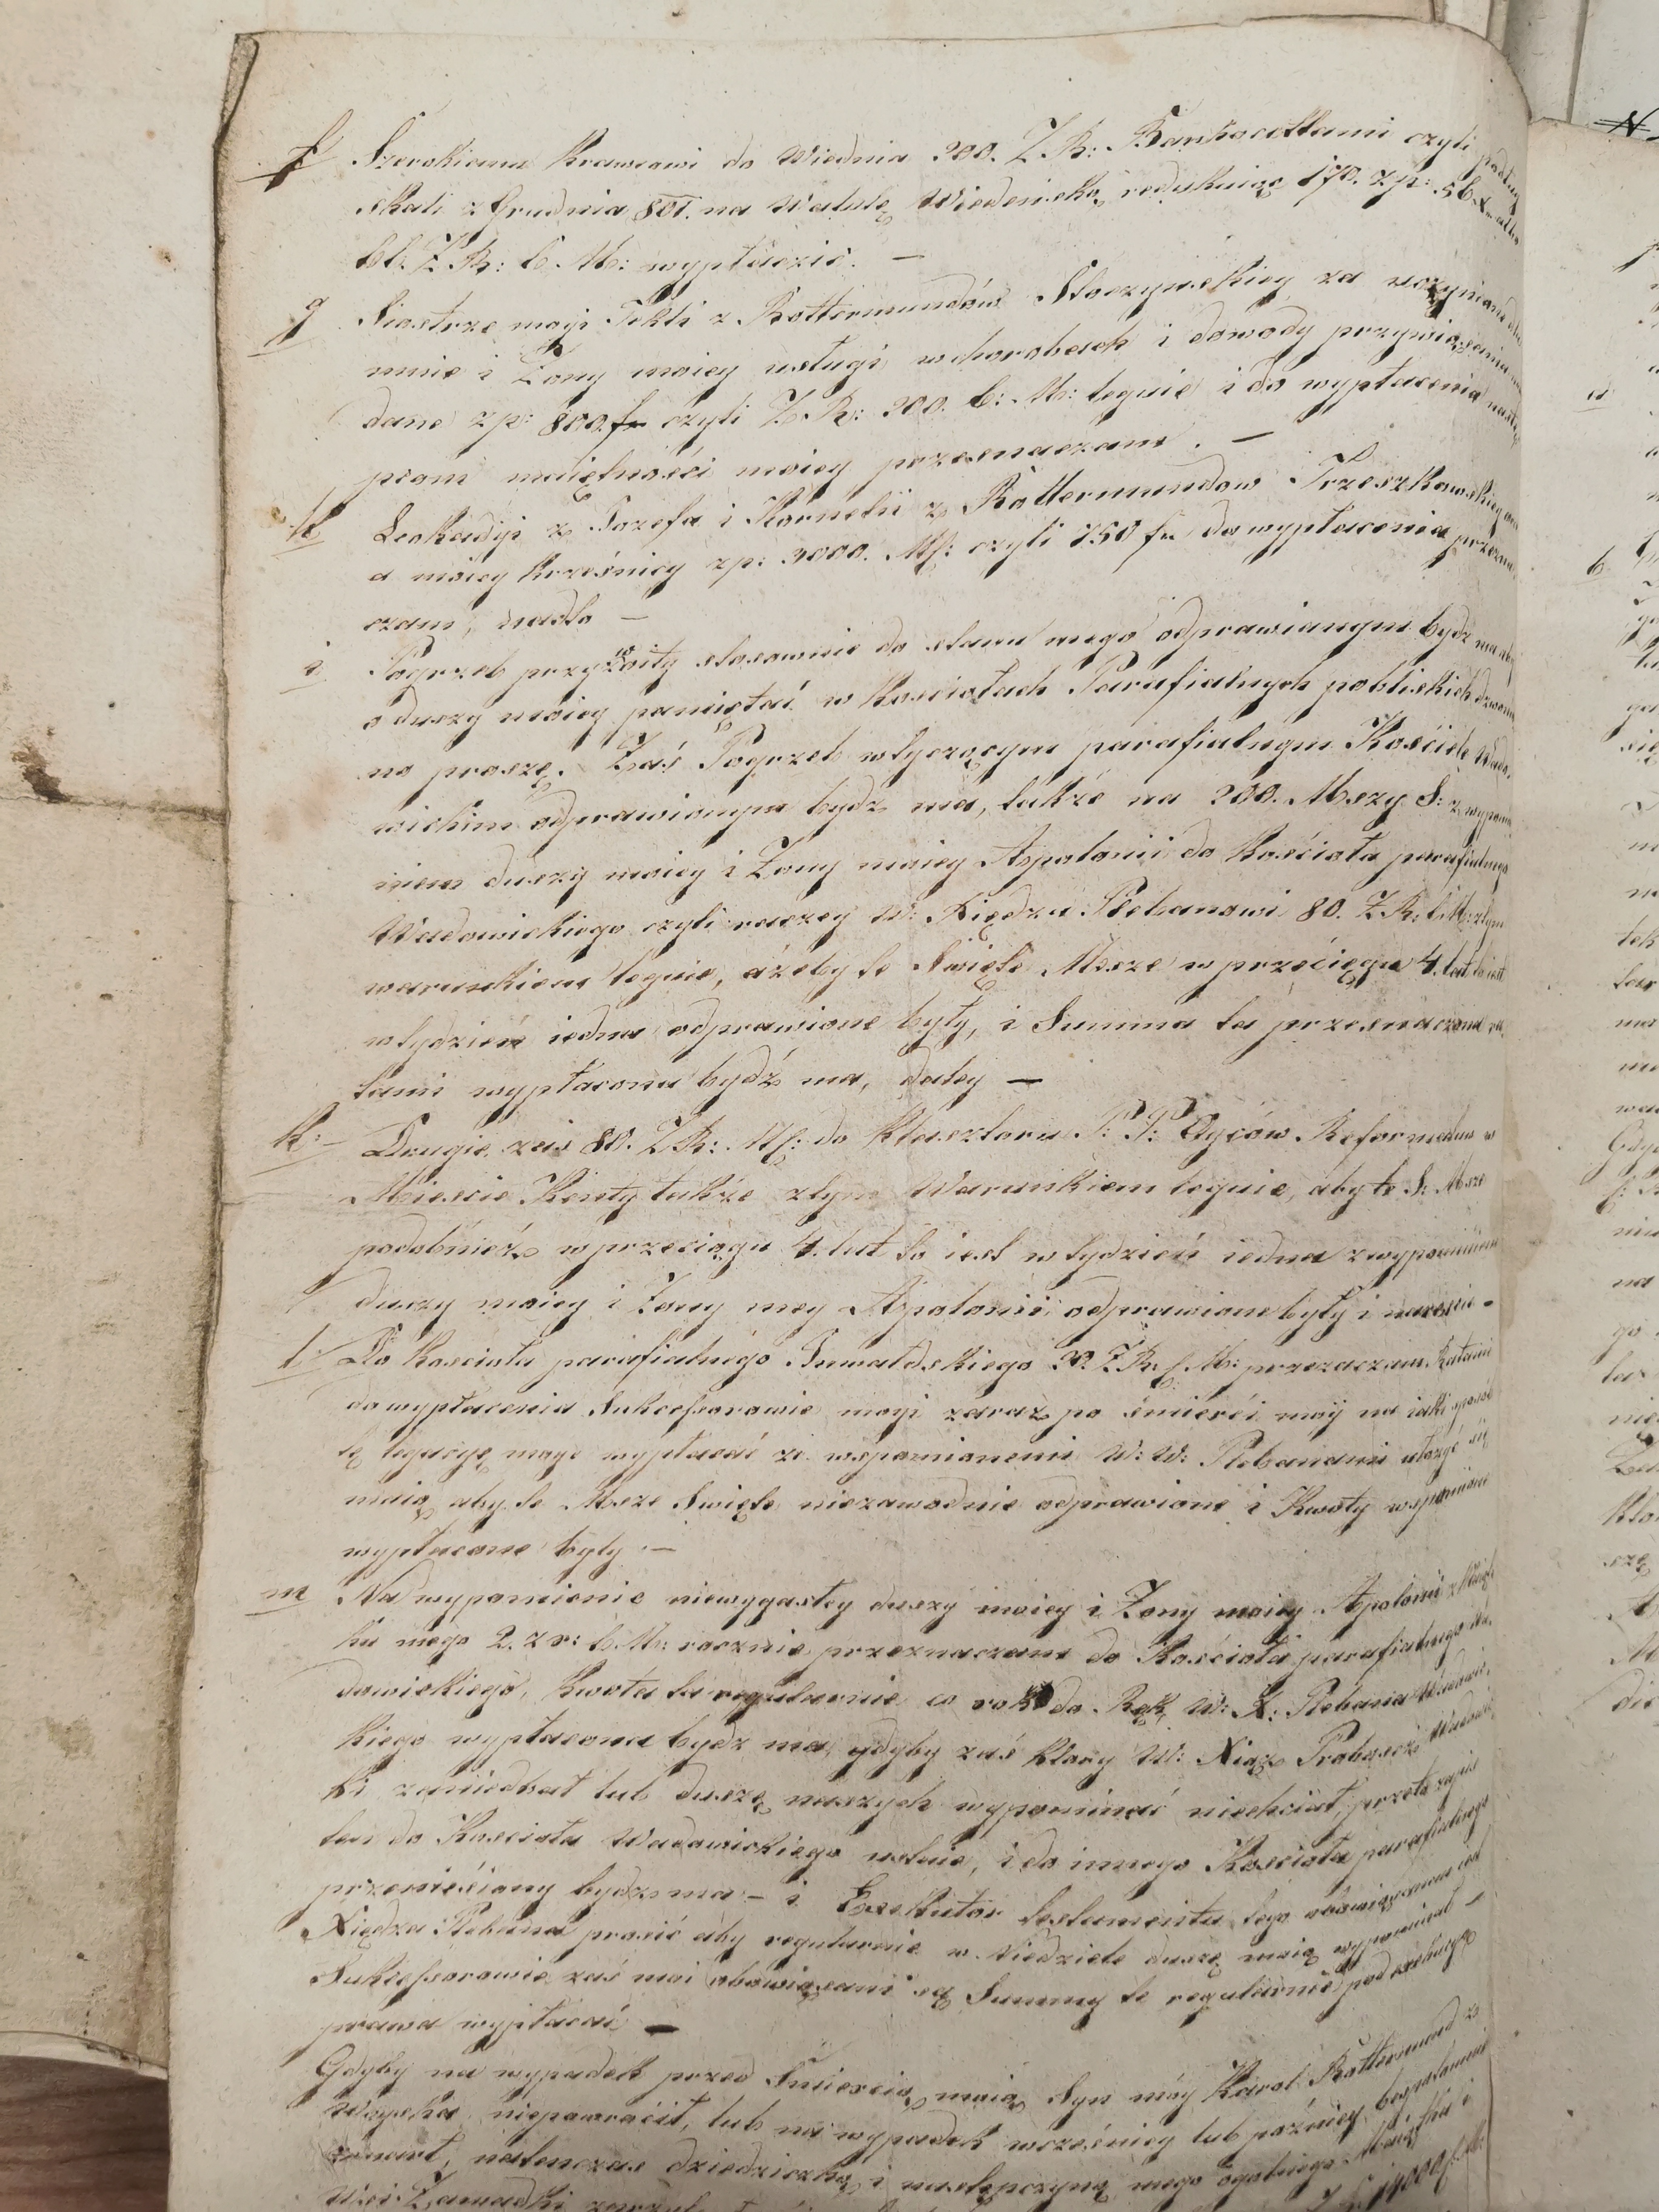 f Szerokiemu Krawcowi do Wiednia 200. Z.R: Bankocetlami czyli podług
skali z Grudnia 801. na Walutę Wiedeńską redukuiąc 170. zp: 56 X albo
Z.R: C. M: wypłacić. —
g Siostrze moji Tekli z Rottermundów Słoczyńskiey za uczynione dla
mnie i Żony moiey usługi w chorobach i dowody przywiązania
dane zp: 800. fr czyli Z.R: 200. C: M: leguie i do wypłacenia
pcom maiętności moiey przeznaczam. —
h Leokadyi z Józefa i Kornelii z Rottermundów Trzeszkowskiey
a moiey krześnicy zp: 3000. Mk: czyli 750 fr do wypłacenia przezna
czam, nadto —
i Pogrzeb przyzwoity stosownie do stanu mego odprawianym bydz ma aby
o duszy moiey pamiętać w Kościołach Parafialnych pobliskich dzwoni
no proszę. Zaś Pogrzeb w tyczącym parafialnym Kościele Wado,
wickim odprawionym bydz ma, także na 200. Mszy S: z wypomi
niem duszy moiey i Żony moiey Appolonii do Kościoła parafialnego
Wadowickiego czyli raczey W: Xiędzu Plebanowi 80. Z.R: C.M: z tym
warunkiem leguie, ażeby te Święte Msze w przeciągu 4. lat to iest
w tydzień iedna odprawione były, i Summa ta przeznaczona ra,
tami wypłacona bydź ma, daley —
k:- Drugie zaś 80. Z.R: Mk: do Klasztoru P: P: Oyców Reformatów w
Mieście Kenty także z tym Warunkiem leguie, aby te S: Msze
podobnież w przeciągu 4. lat to iest w tydzień iedna z wypomnieniem
duszy moiey i Żony mey Appolonii odprawione były i nareście -
l Do Kościoła parafialnego Inwałdskiego 20. Z.R: C. M: przeznaczam Ratami
do wypłacenia Sukcessorowie moji zaraz po śmierci moji na iaki sposób
tę legacyę mogę wypłacać ze wspomnionemi W: W: Plebanami ułożyć się
maią aby te Msze Święte niezawodnie odprawione i Kwoty wspomnione
wypłacone były. —
m Na wypomnienie niewygasłey duszy moiey i Żony moiey Appolonii z Maiąt
ku mego 2. zr: C. M: rocznie przeznaczam do Kościoła parafialnego Wa,
dowickiego, kwota ta regularnie co rok do Rąk W: X: Plebana Wadowic,
kiego wypłacona bydz ma, gdyby zaś który W: Xiądz Proboszcz Wadowic,
ki zaniedbał lub duszę naszych wypominać niechciał, przeto zapis
ten do Kościoła Wadowickiego ustaie, i do innego Kościoła parafialnego
przeniesiony bydz ma - i Exekutor testamentu tego obowiązanym iest
Xiędza Plebana prosić aby regularnie w Niedziele duszę moię wypominał -
Sukcessorowie zaś moi obowiązani są Summy te regularnie pod exekucyą
prawa wypłacać —
Gdyby na wypadek przed śmiercią moią Syn móy Karol Rottermund z
Woyska niepowrócił, lub na wypadek wcześniey lub późniey bezpotomnie
zmarł, natenczas dziedziczką i następczynią mego ogólnego Maiątku i
Wsi Zawadki